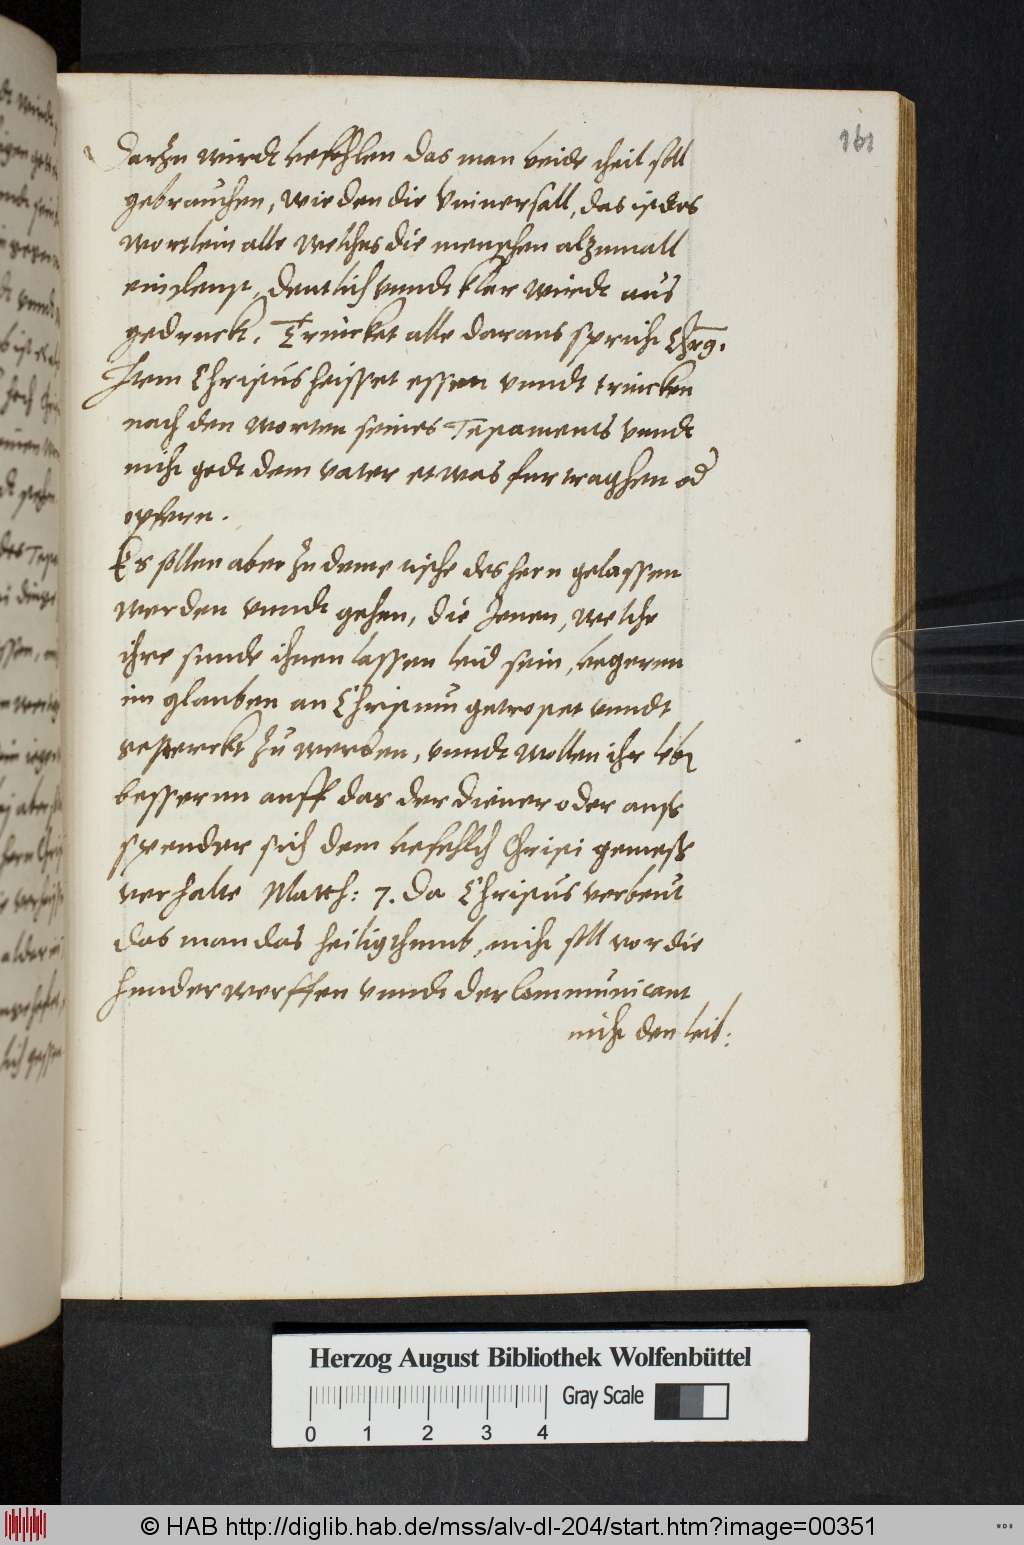 161
darzu wirdt befohlen das man beide theil soll
gebrauchen, wie den die Vniuersall, das ist des
wortlein alle welches die menschen alzumall
einschleust, deutlich vnndt klar wirdt aus
gedruckt. Trincket alle daraus spricht Chrs.
Item Christus heisset essen vnndt trincken
nach den worten seines Testaments vnndt
nicht gedt dem vater etwas furtraghen od
opfern.
Es sollen aber zu deme tische des hern gelassen
werden vnndt gehen, die Jenen, welche
ihre sunde ihnen lassen leid sein, begeren
im glauben an Christum getrostet vnndt
gesterckt zu werden, vnndt wollen ihr leben
besserenn auff das der diener oder auß
spender sich dem befehlch Christi gemeß
verhalte Matth: 7. da Christus verbeut
das man das heiligthumb, nicht soll vor die
hunde werffen vnndt der Communicant
nicht den leib:
Herzog August Bibliothek Wolfenbüttel
Gray Scale
0 1 2 3 4
© HAB http://diglib.hab.de/mss/alv-dl-204/start.htm?image=00351